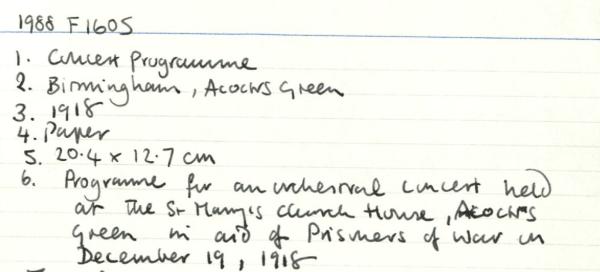 1988 F1605
1. Concert Programme
2. Birmingham, Acocks Green
3. 1918
4. Paper
5. 20.4 x 12.7 cm
6. Programme for an orchestral concert held
at the St Mary's Church House, Acock's
Green in aid of Prisoners of War on
December 19, 1918